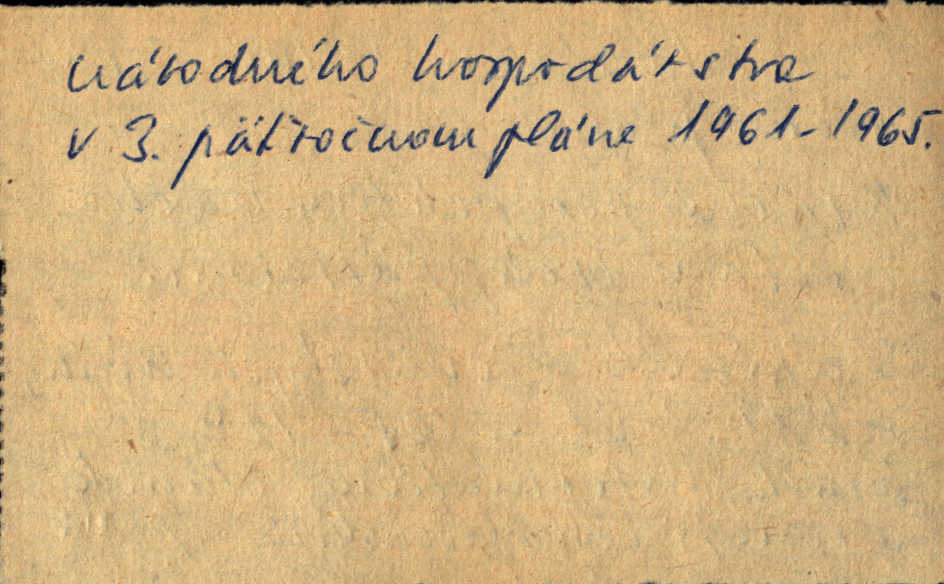 národného hospodárstva
v 3. päťročnom pláne 1961-1965.